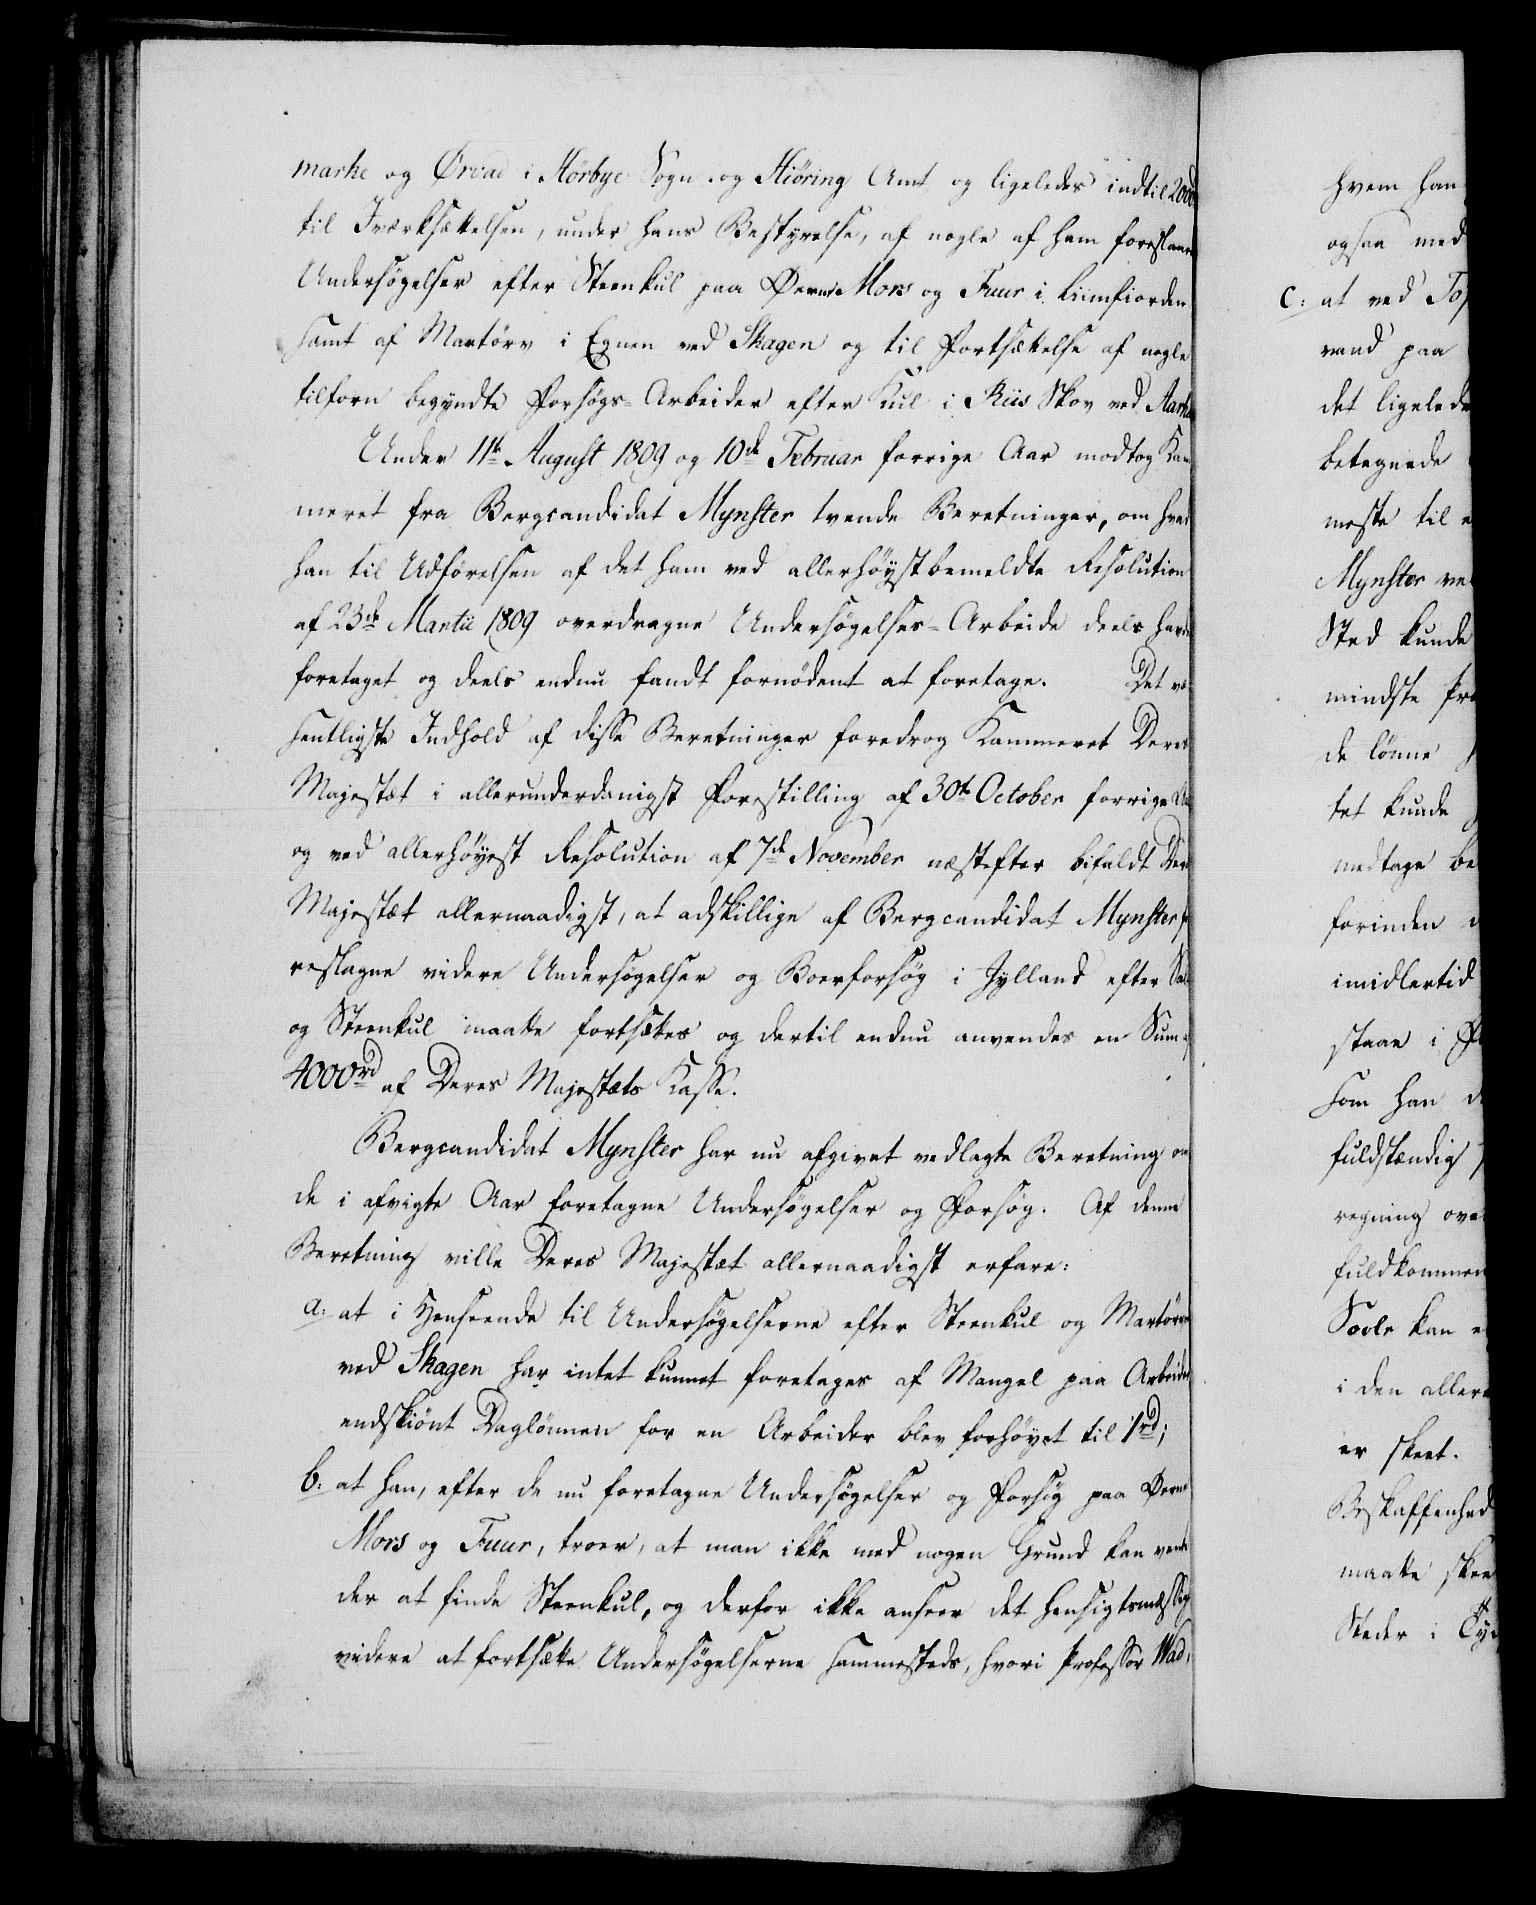 marke og Ørvad i Hörbye Sogn og Hiöring Amt og ligeledes indtil 2000
til Iværksættelsen, under hans Bestyrelse, af nogle af ham foreslaaede
Undersögelser efter Steenkul paa Öerne Mors og Fuur i Liimfiorden
samt af Martörv i Egnen ved Skagen og til Fortsættelse af nogle
tilforn begyndte Forsögs-Arbeider efter Kul i Riis Skov ved Aarhu
Under 11te August 1809 og 10de Februar forrige Aar modtog Kam
meret fra Bergcandidat Mynster tvende Beretninger, om hvad
han til Udförelsen af det ham ved allerhöystbemeldte Resolution
af 23de Martii 1809 overdragne Undersögelses-Arbeide deels havde
foretaget og deels endnu fandt fornödent at foretage. Det væ-
sentligste Indhold af disse Beretninger foredrog Kammeret Deres
Majestæt i allerunderdanigst Forestilling af 30te October forrige Aa
og ved allerhöyest Resolution af 7de November næstefter bifaldt Der
Majestæt allernaadigst, at adskillige af Bergcandidat Mynster fo
reslagne videre Undersögelser og Boerforsög i Jylland efter Sal
og Steenkul maatte fortsættes og dertil endnu anvendes en Sum af
4000rd af Deres Majestæts Kasse.
Bergcandidat Mynster har nu afgivet vedlagte Beretning om
de i afvigte Aar foretagne Undersögelser og Forsög. Af denne
Beretning ville Deres Majestæt allernaadigst erfare:
a: at i Henseende til Undersögelserne efter Steenkul og Martörv
ved Skagen har intet kunnet foretages af Mangel paa Arbeider
endskiönt Daglönnen for en Arbeider blev forhöyet til 1rd;
b: at han, efter de nu foretagne Undersögelser og Forsög paa Öerne
Mors og Fuur, troer, at man ikke med nogen Grund kan vente
der at finde Steenkul, og derfor ikke anseer det hensigtsmæssig
videre at fortsætte Undersögelserne sammesteds, hvori Professor Wad,
hvem han
ogsaa med
c: at ved To
vand paa
det ligelede
betegnede
meste til
Mynster ve
Sted kunde
mindste fra
de lönne
tet kunde
medtage be
forinden
imidlertid
staae i
som han
fuldstændig
regning ove
fuldkommen
Soole kan
i den aller
er skeet.
Beskaffenhed
maatte skee
Steder i Ty